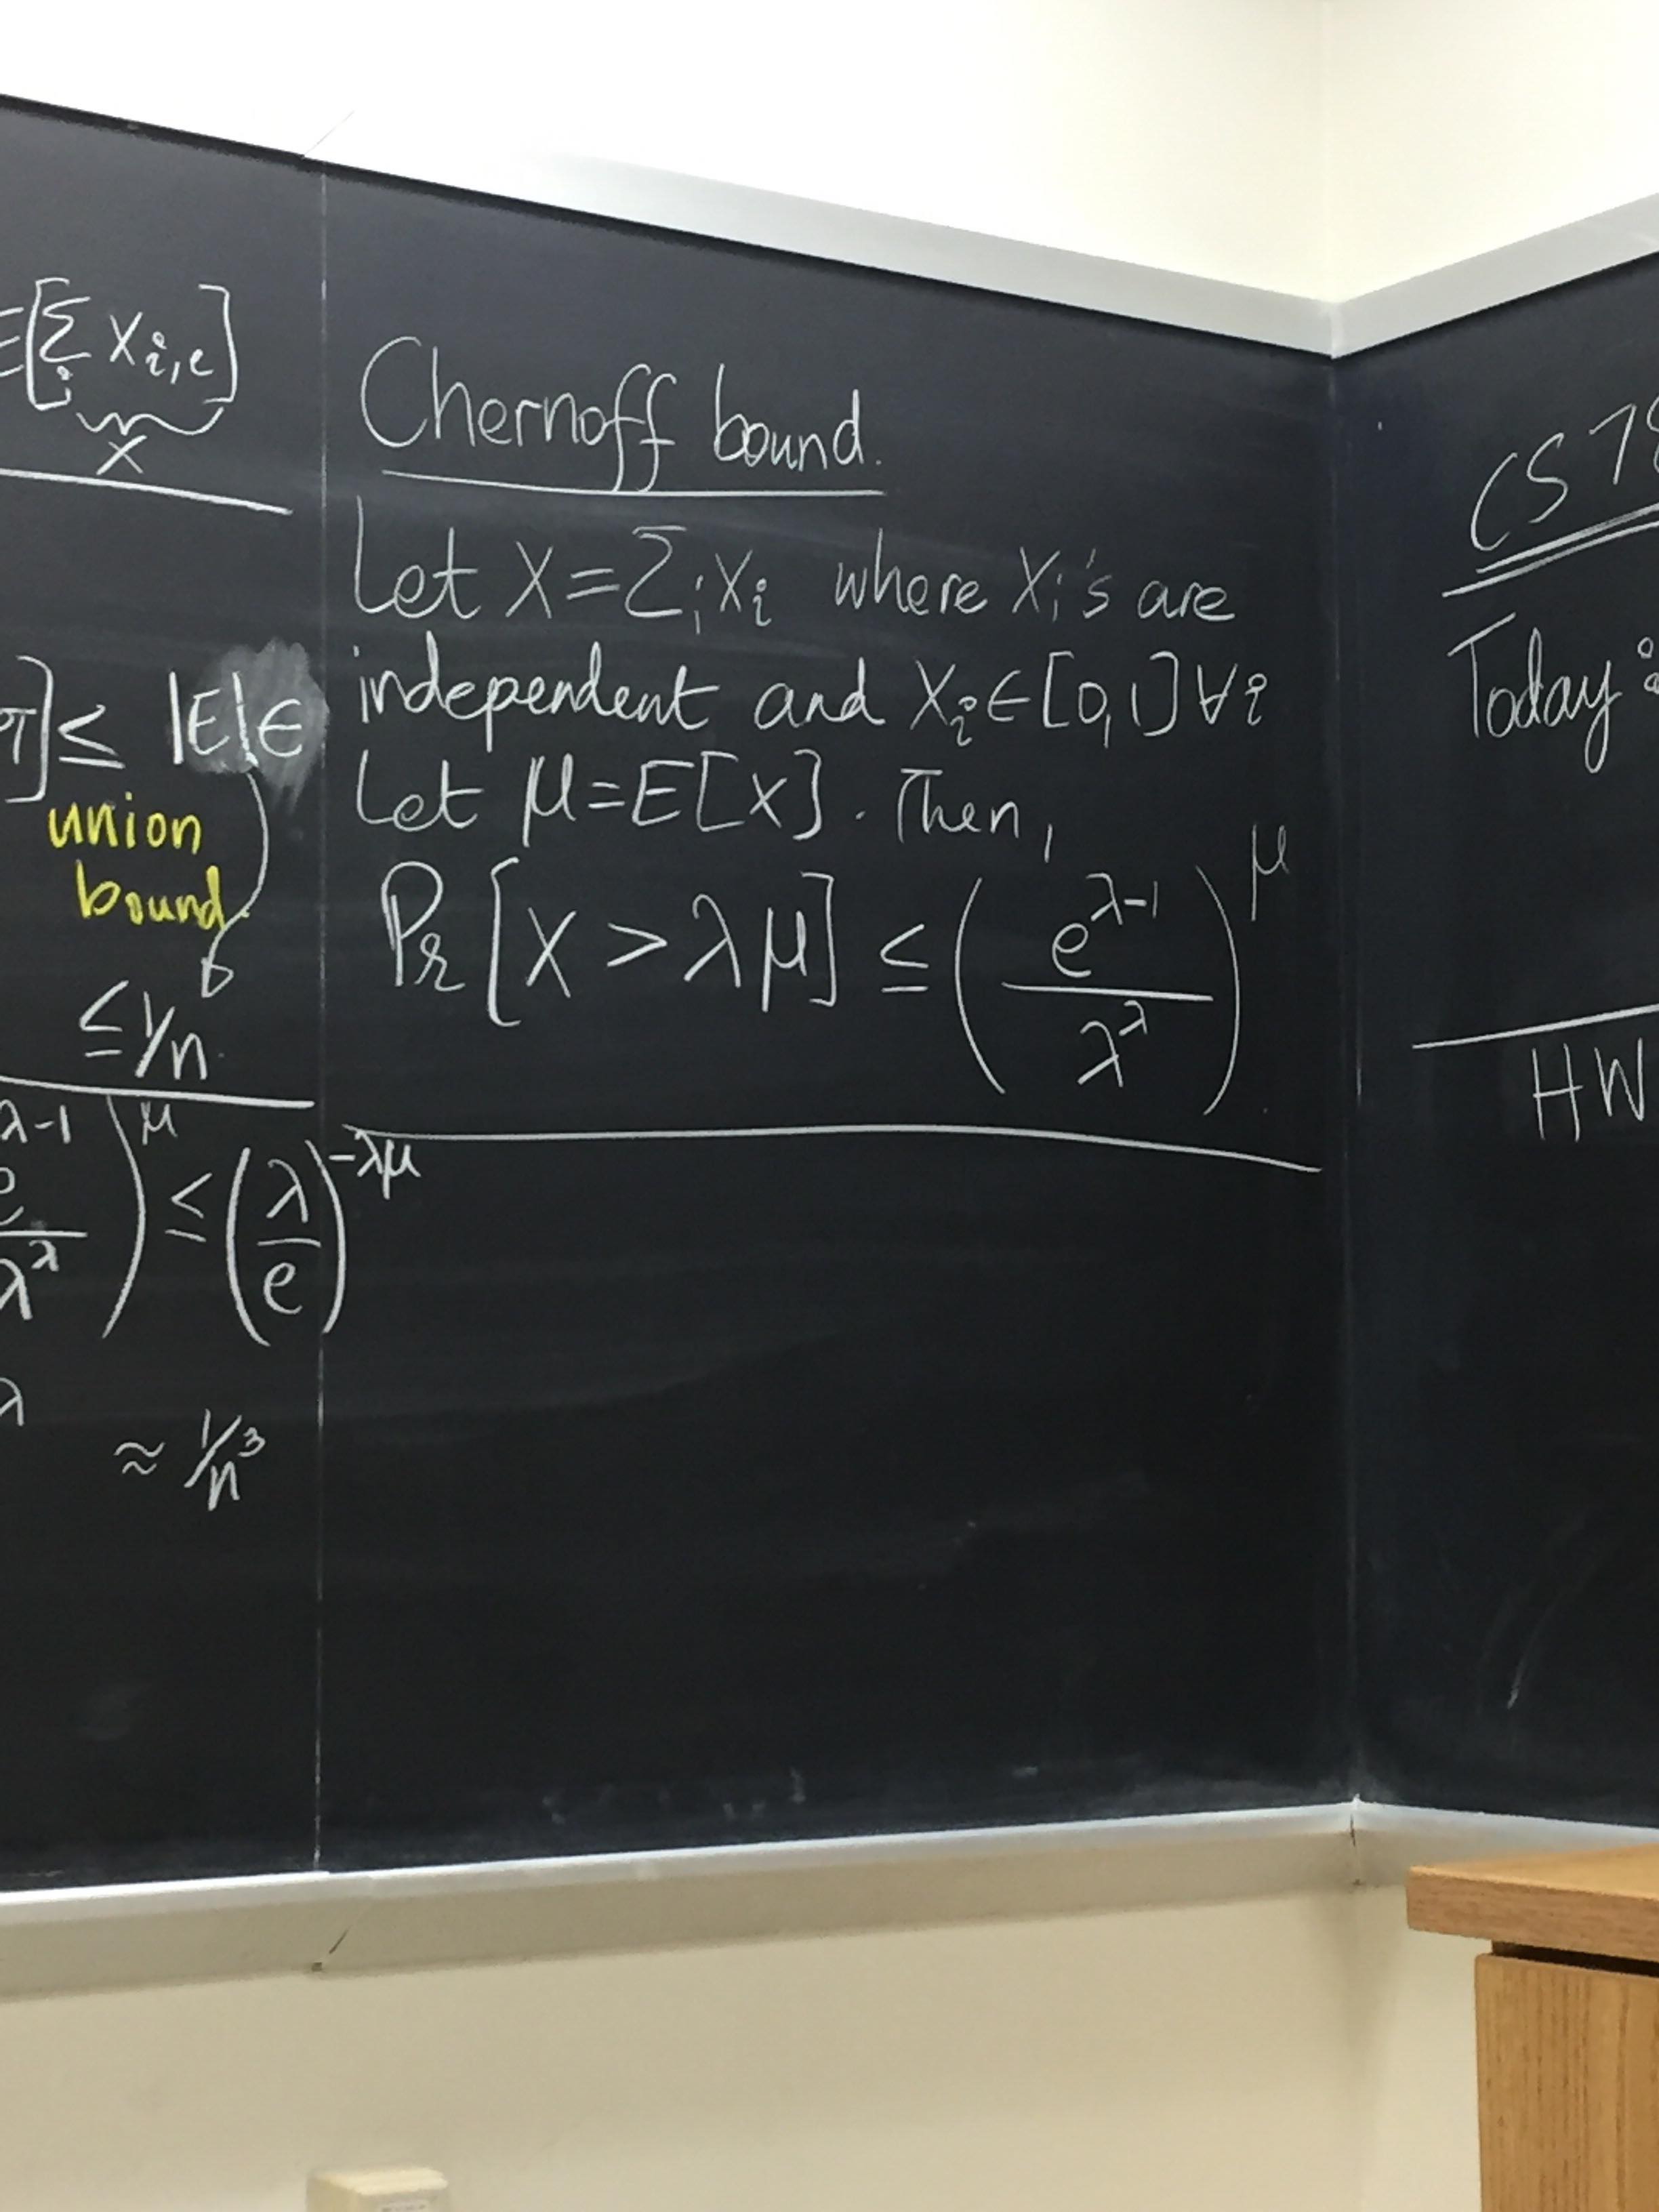 E[Σ_i X_{i,e}]
X
] ≤ |E|ϵ
union
bound
≤ 1/n.
e^{λ-1}/λ^λ)^μ ≤ (λ/e)^{-λμ}
λ
≈ 1/n³
Chernoff bound.
Let X=Σ_i X_i where X_i's are
independent and X_i ∈ [0,1] ∀i
Let μ=E[X]. Then,
Pr[X > λμ] ≤ (e^{λ-1}/λ^λ)^μ
CS 78
Today:
HW